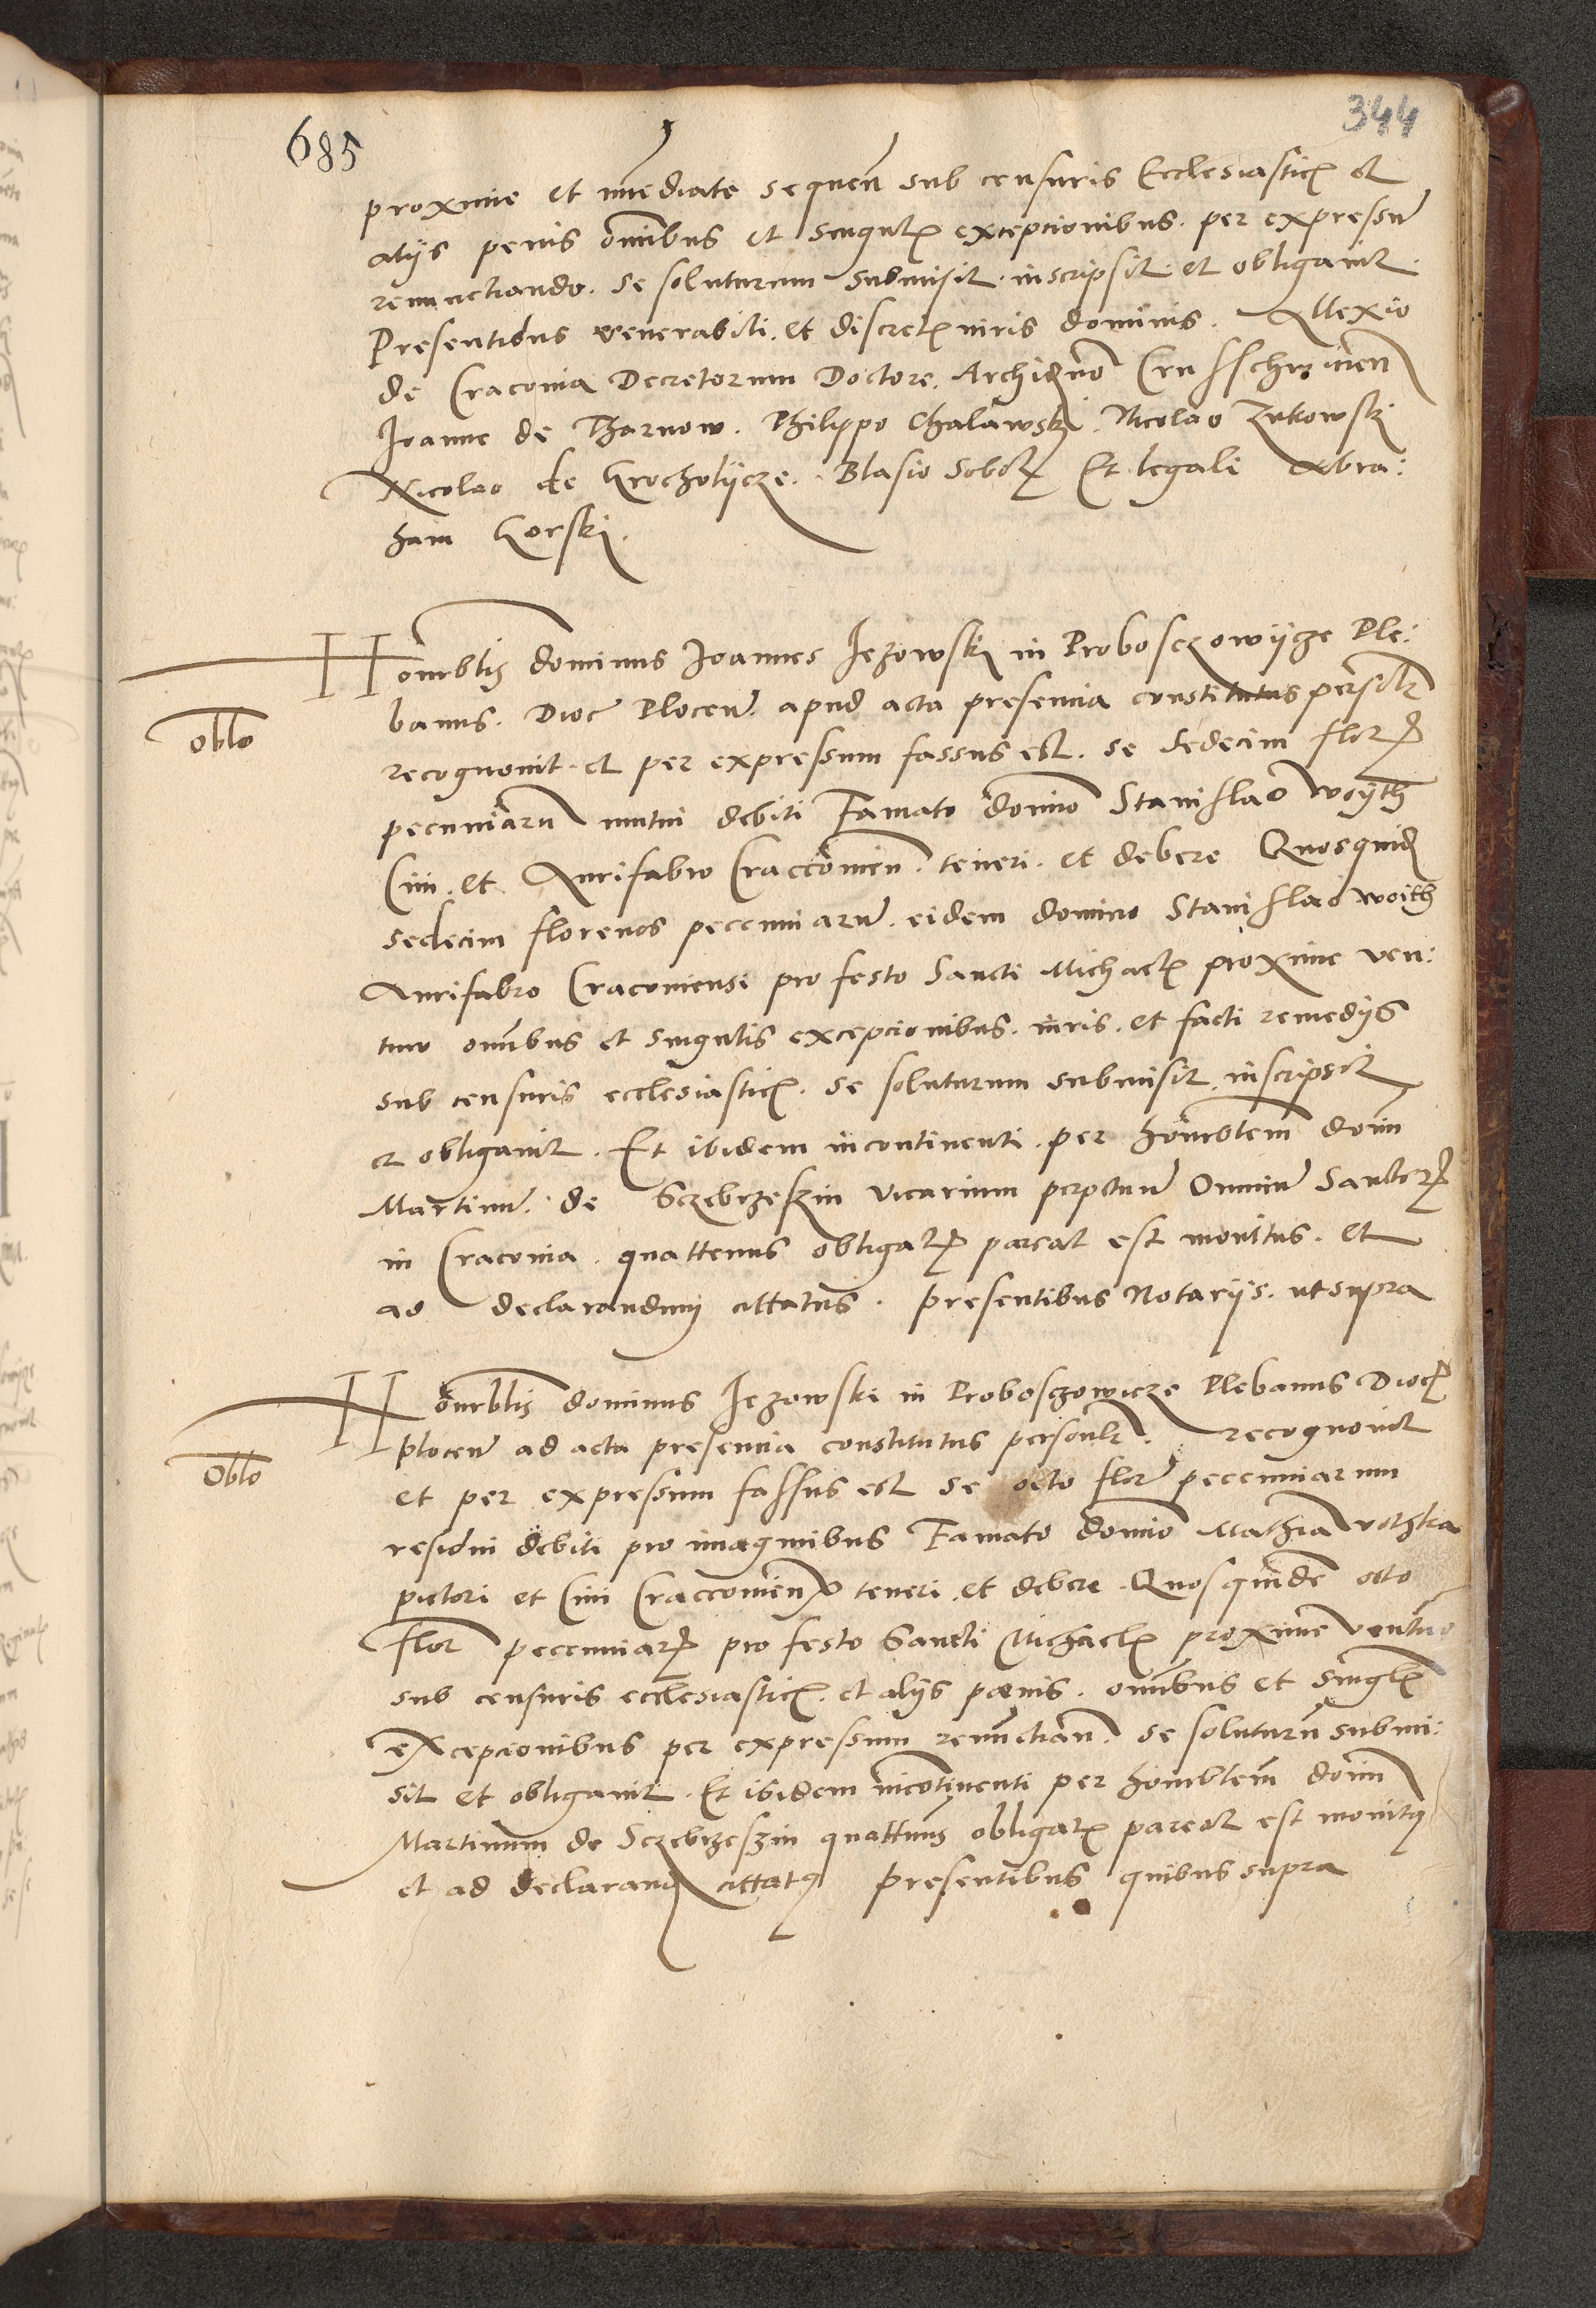 685
344
proxime et immediate sequen sub censuris Ecclesiasticis et
alijs penis omnibus et singulis excepcionibus. per expressum
renunctiando. se soluturum submisit. inscripsit. et obligauit.
Presentibus venerabili. et discretis viris dominis. Allexio
de Cracouia Decretorum Doctore. Archidno Crusschwicien
Joanne de Tharnow. Philippo Chalawski. Nicolao Zukowski
Nicolao de Grocholijcze. Blasio Et legali Abra:
ham Gorski.
Honorablis dominus Joannes Jezowski in Probosczowijcze Ple:
banus. Dioc Plocen. apud acta presencia constitutus personlr
oblo
recognouit. et per expressum fassus est. se sedecim flor
pecuniarum mutui debiti Famato domino Stanislao woyth
Ciui. et Aurifabro Craccouien. teneri. et debere Quosquid
sedecim florenos peccuniarum. eidem domino Stanislao woith
Aurifabro Cracouiensi pro festo Sancti Michaelis proxime ven:
turo omnibus et singulis excepcionibus. iuris. et facti remedijs
sub censuris ecclesiasticis. se soluturum submisit. inscripsit
et obligauit. Et ibidem incontinenti. per honorabtem domi
Martinum. de Sczebrzeszin vicarium perpetuum Omnium Sanctor
in Cracouia. quattenus obligatis pareat est monitus. et
ad declarandum cittatus. presentibus Notarijs. ut supra
Honorablis dominus Jezowski in Proboszowicze Plebanus Dioc
plocen ad acta presencia constitutus personlr. recognouit
Oblo
et per expressum fassus est se octo flor peccuniarum
residui debiti pro imaginibus Famato domino Mathia
pictori et Ciui Craccouien teneri. et debere. Quosquidem octo
flor peccuniar pro festo Sancti Michaelis proxime venturo
sub censuris ecclesiasticis. et alijs poenis. omnibus et singlis
excepcionibus per expressum renunctian. se soluturum submi:
sit et obligauit. Et ibidem incontinenti per honorabtem domi
Martinum de Sczebrzeszin quattenus obligatis pareat est monitus
et ad declarand cittatus presentibus quibus supra